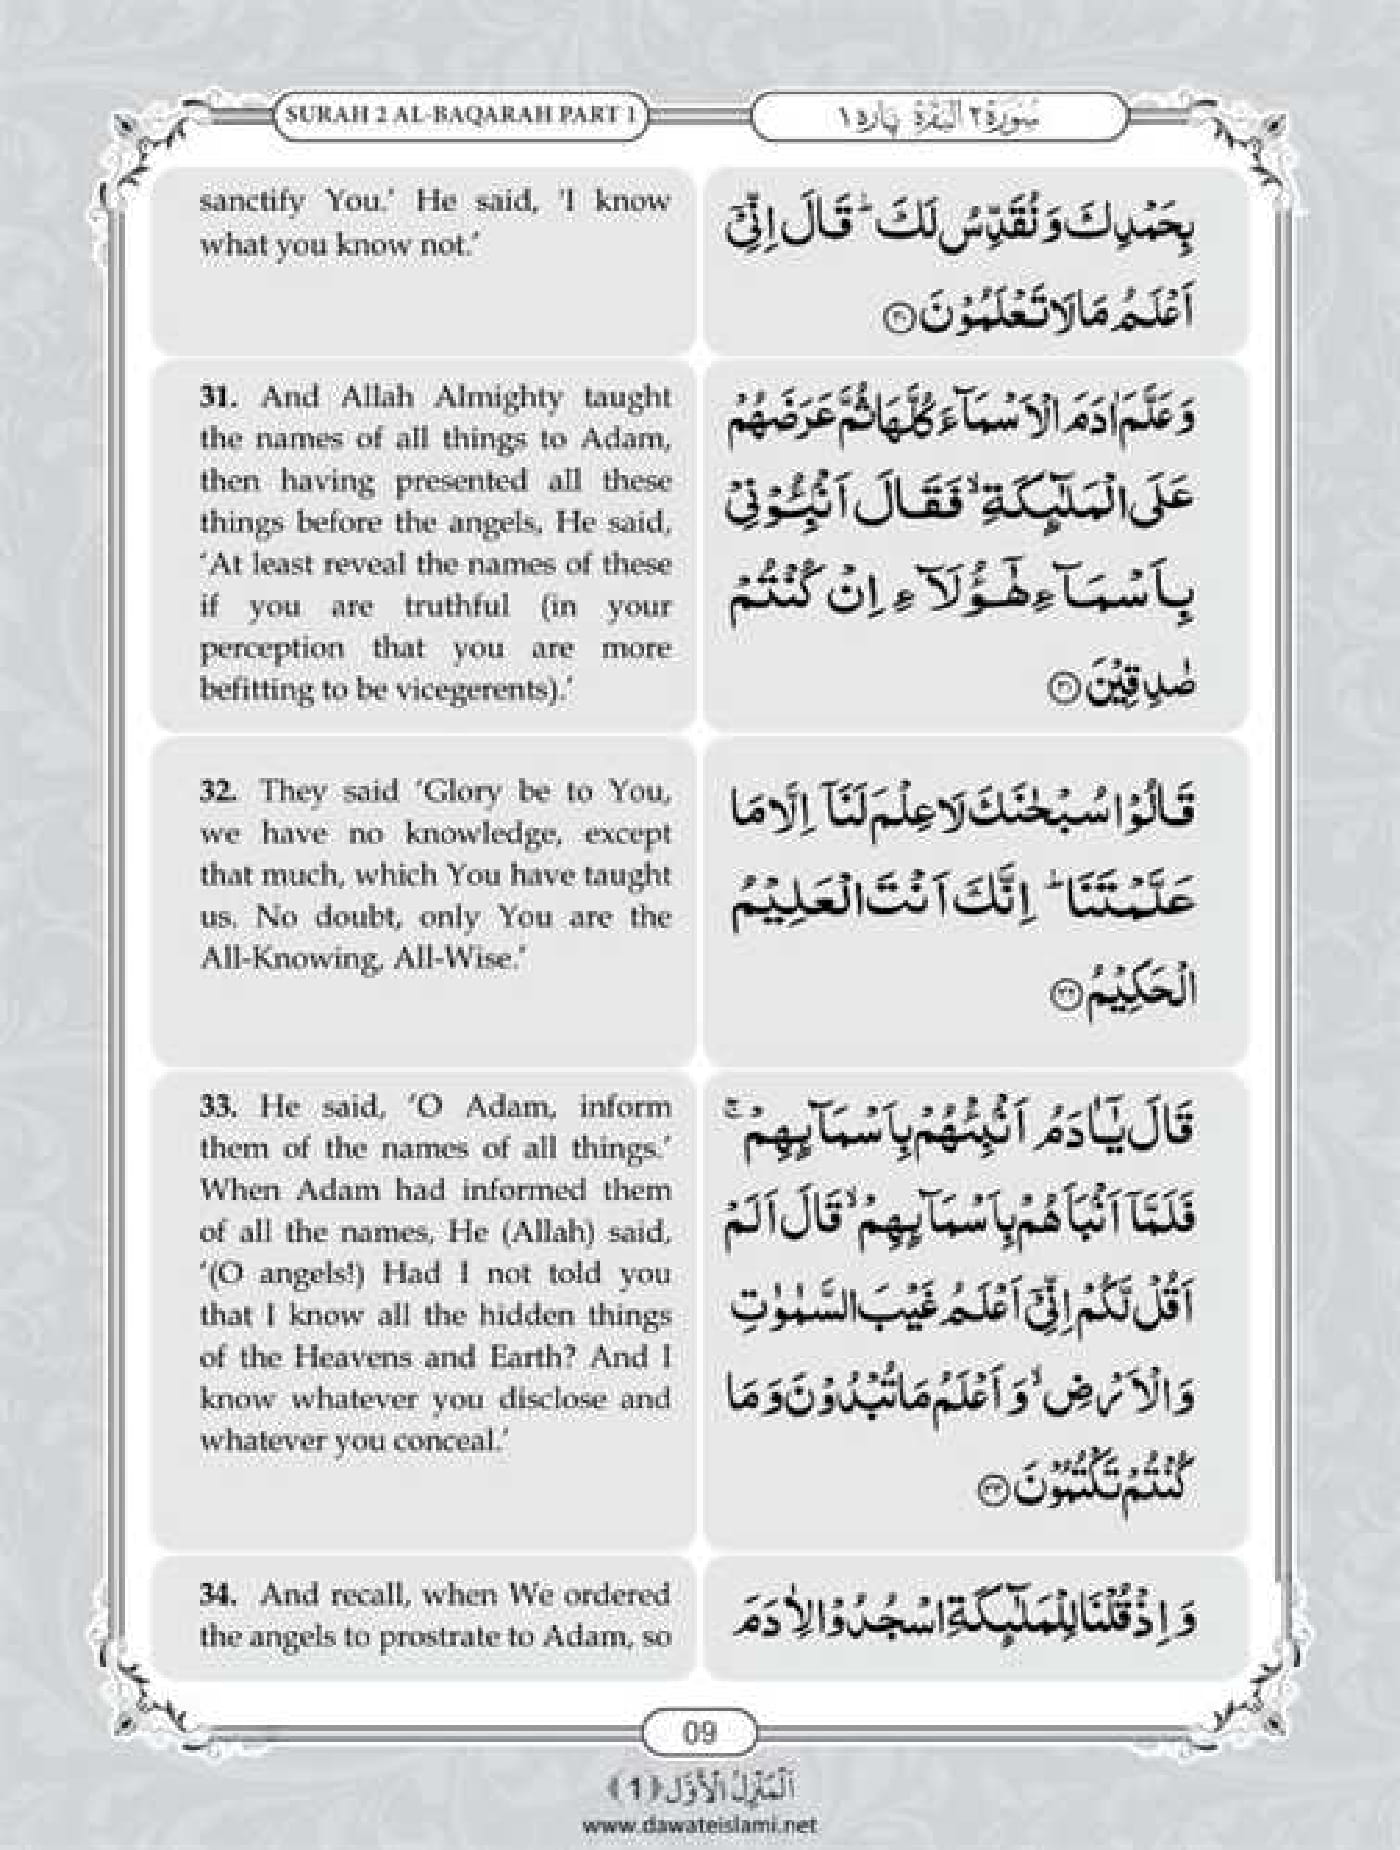 SURAH 2 AL-BAQARAH PART 1
سُوْرَةُ ٢ اَلْبَقَرَةِ پاره ١
sanctify You.’ He said, ‘I know
what you know not.’
بِحَمْدِكَ وَ نُقَدِّسُ لَكَ ؕ قَالَ اِنِّیْۤ
اَعْلَمُ مَا لَا تَعْلَمُوْنَ ﴿۳۰﴾
31. And Allah Almighty taught
the names of all things to Adam,
then having presented all these
things before the angels, He said,
‘At least reveal the names of these
if you are truthful (in your
perception that you are more
befitting to be vicegerents).’
وَ عَلَّمَ اٰدَمَ الْاَسْمَآءَ كُلَّهَا ثُمَّ عَرَضَهُمْ
عَلَى الْمَلٰٓىِٕكَةِ ۙ فَقَالَ اَنْۢبِـُٔوْنِیْ
بِاَسْمَآءِ هٰۤؤُلَآءِ اِنْ كُنْتُمْ
صٰدِقِیْنَ ﴿۳۱﴾
32. They said ‘Glory be to You,
we have no knowledge, except
that much, which You have taught
us. No doubt, only You are the
All-Knowing, All-Wise.’
قَالُوْا سُبْحٰنَكَ لَا عِلْمَ لَنَاۤ اِلَّا مَا
عَلَّمْتَنَا ؕ اِنَّكَ اَنْتَ الْعَلِیْمُ
الْحَكِیْمُ ﴿۳۲﴾
33. He said, ‘O Adam, inform
them of the names of all things.’
When Adam had informed them
of all the names, He (Allah) said,
‘(O angels!) Had I not told you
that I know all the hidden things
of the Heavens and Earth? And I
know whatever you disclose and
whatever you conceal.’
قَالَ یٰۤاٰدَمُ اَنْۢبِئْهُمْ بِاَسْمَآىِٕهِمْ ۚ
فَلَمَّاۤ اَنْۢبَاَهُمْ بِاَسْمَآىِٕهِمْ ۙ قَالَ اَلَمْ
اَقُلْ لَّكُمْ اِنِّیْۤ اَعْلَمُ غَیْبَ السَّمٰوٰتِ
وَ الْاَرْضِ ۙ وَ اَعْلَمُ مَا تُبْدُوْنَ وَ مَا
كُنْتُمْ تَكْتُمُوْنَ ﴿۳۳﴾
34. And recall, when We ordered
the angels to prostrate to Adam, so
وَ اِذْ قُلْنَا لِلْمَلٰٓىِٕكَةِ اسْجُدُوْا لِاٰدَمَ
09
اَلْمَنْزِلُ الْاَوَّل ﴿1﴾
www.dawateislami.net